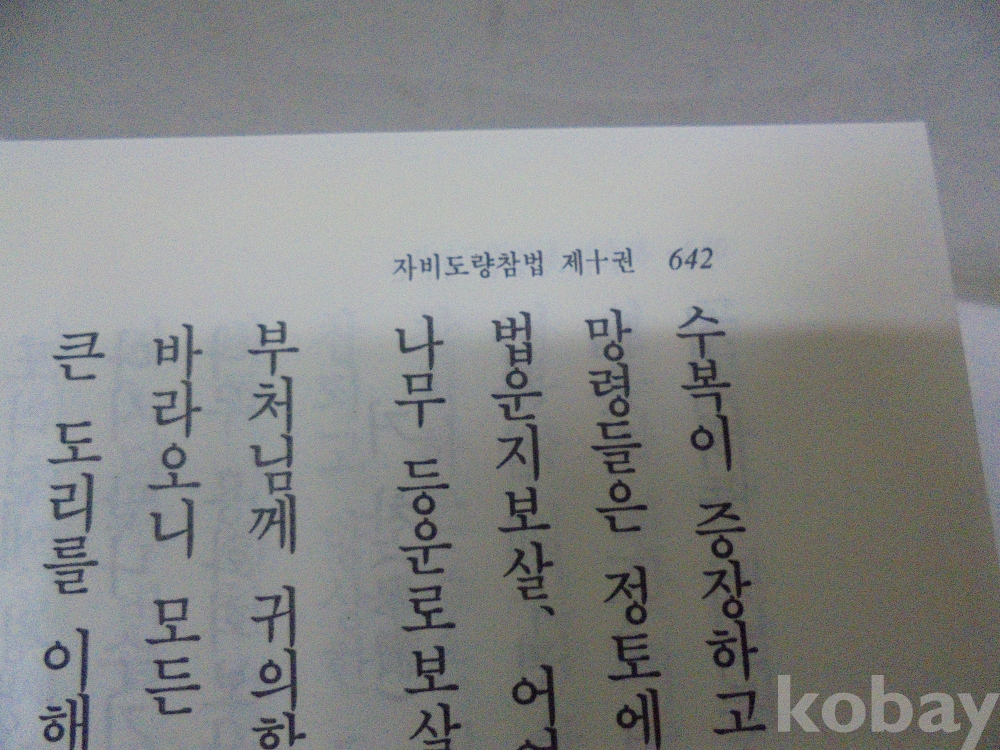 자비도량참법 제十권 642
수복이 증장하고
망령들은 정토에
법운지보살,
나무 등운로보살
부처님께 귀의
바라오니 모든
큰 도리를 이해
kobay